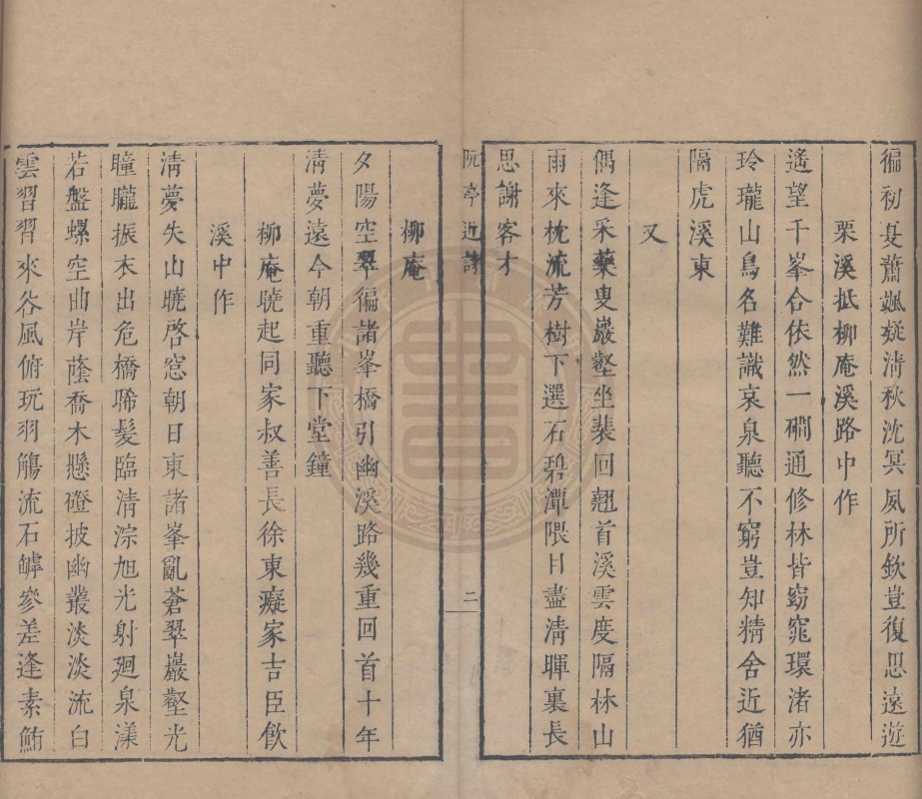 徧初夏蕭颯疑淸秋沈冥夙所欽豈復思遠遊
栗溪抵柳庵溪路中作
遙望千峯合依然一磵通修林皆窈窕環渚亦
玲瓏山鳥名難識哀泉聽不窮豈知精舍近猶
隔虎溪東
又
偶逢采藥叟巖壑坐裴回翹首溪雲度隔林山
雨來枕流芳樹下選石碧潭隈日盡淸暉裏長
思謝客才
阮亭近詩
二
柳庵
夕陽空翠徧諸峯橋引幽溪路幾重回首十年
淸夢遠今朝重聽下堂鐘
柳庵曉起同家叔善長徐東癡家吉臣飮
溪中作
淸夢失山曉啓窓朝日東諸峯亂蒼翠巖壑光
曈曨振衣出危橋晞髮臨淸淙旭光射廻泉漾
若盤螺空曲岸蔭喬木懸磴披幽叢淡淡流白
雲習習來谷風俯玩羽觴流石罅參差逢素鮪